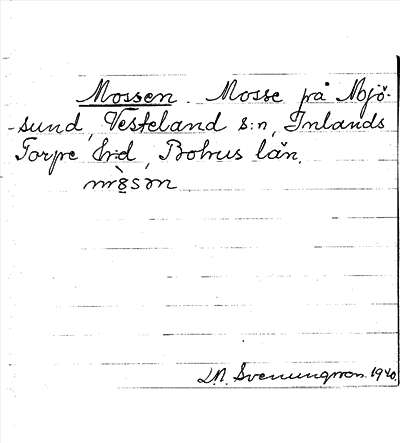 Mossen. Mosse på Mjö-
-sund, Vesteland s:n, Inlands
Torpe h:d, Bohus län.
L.N. Svenungsson 1940.